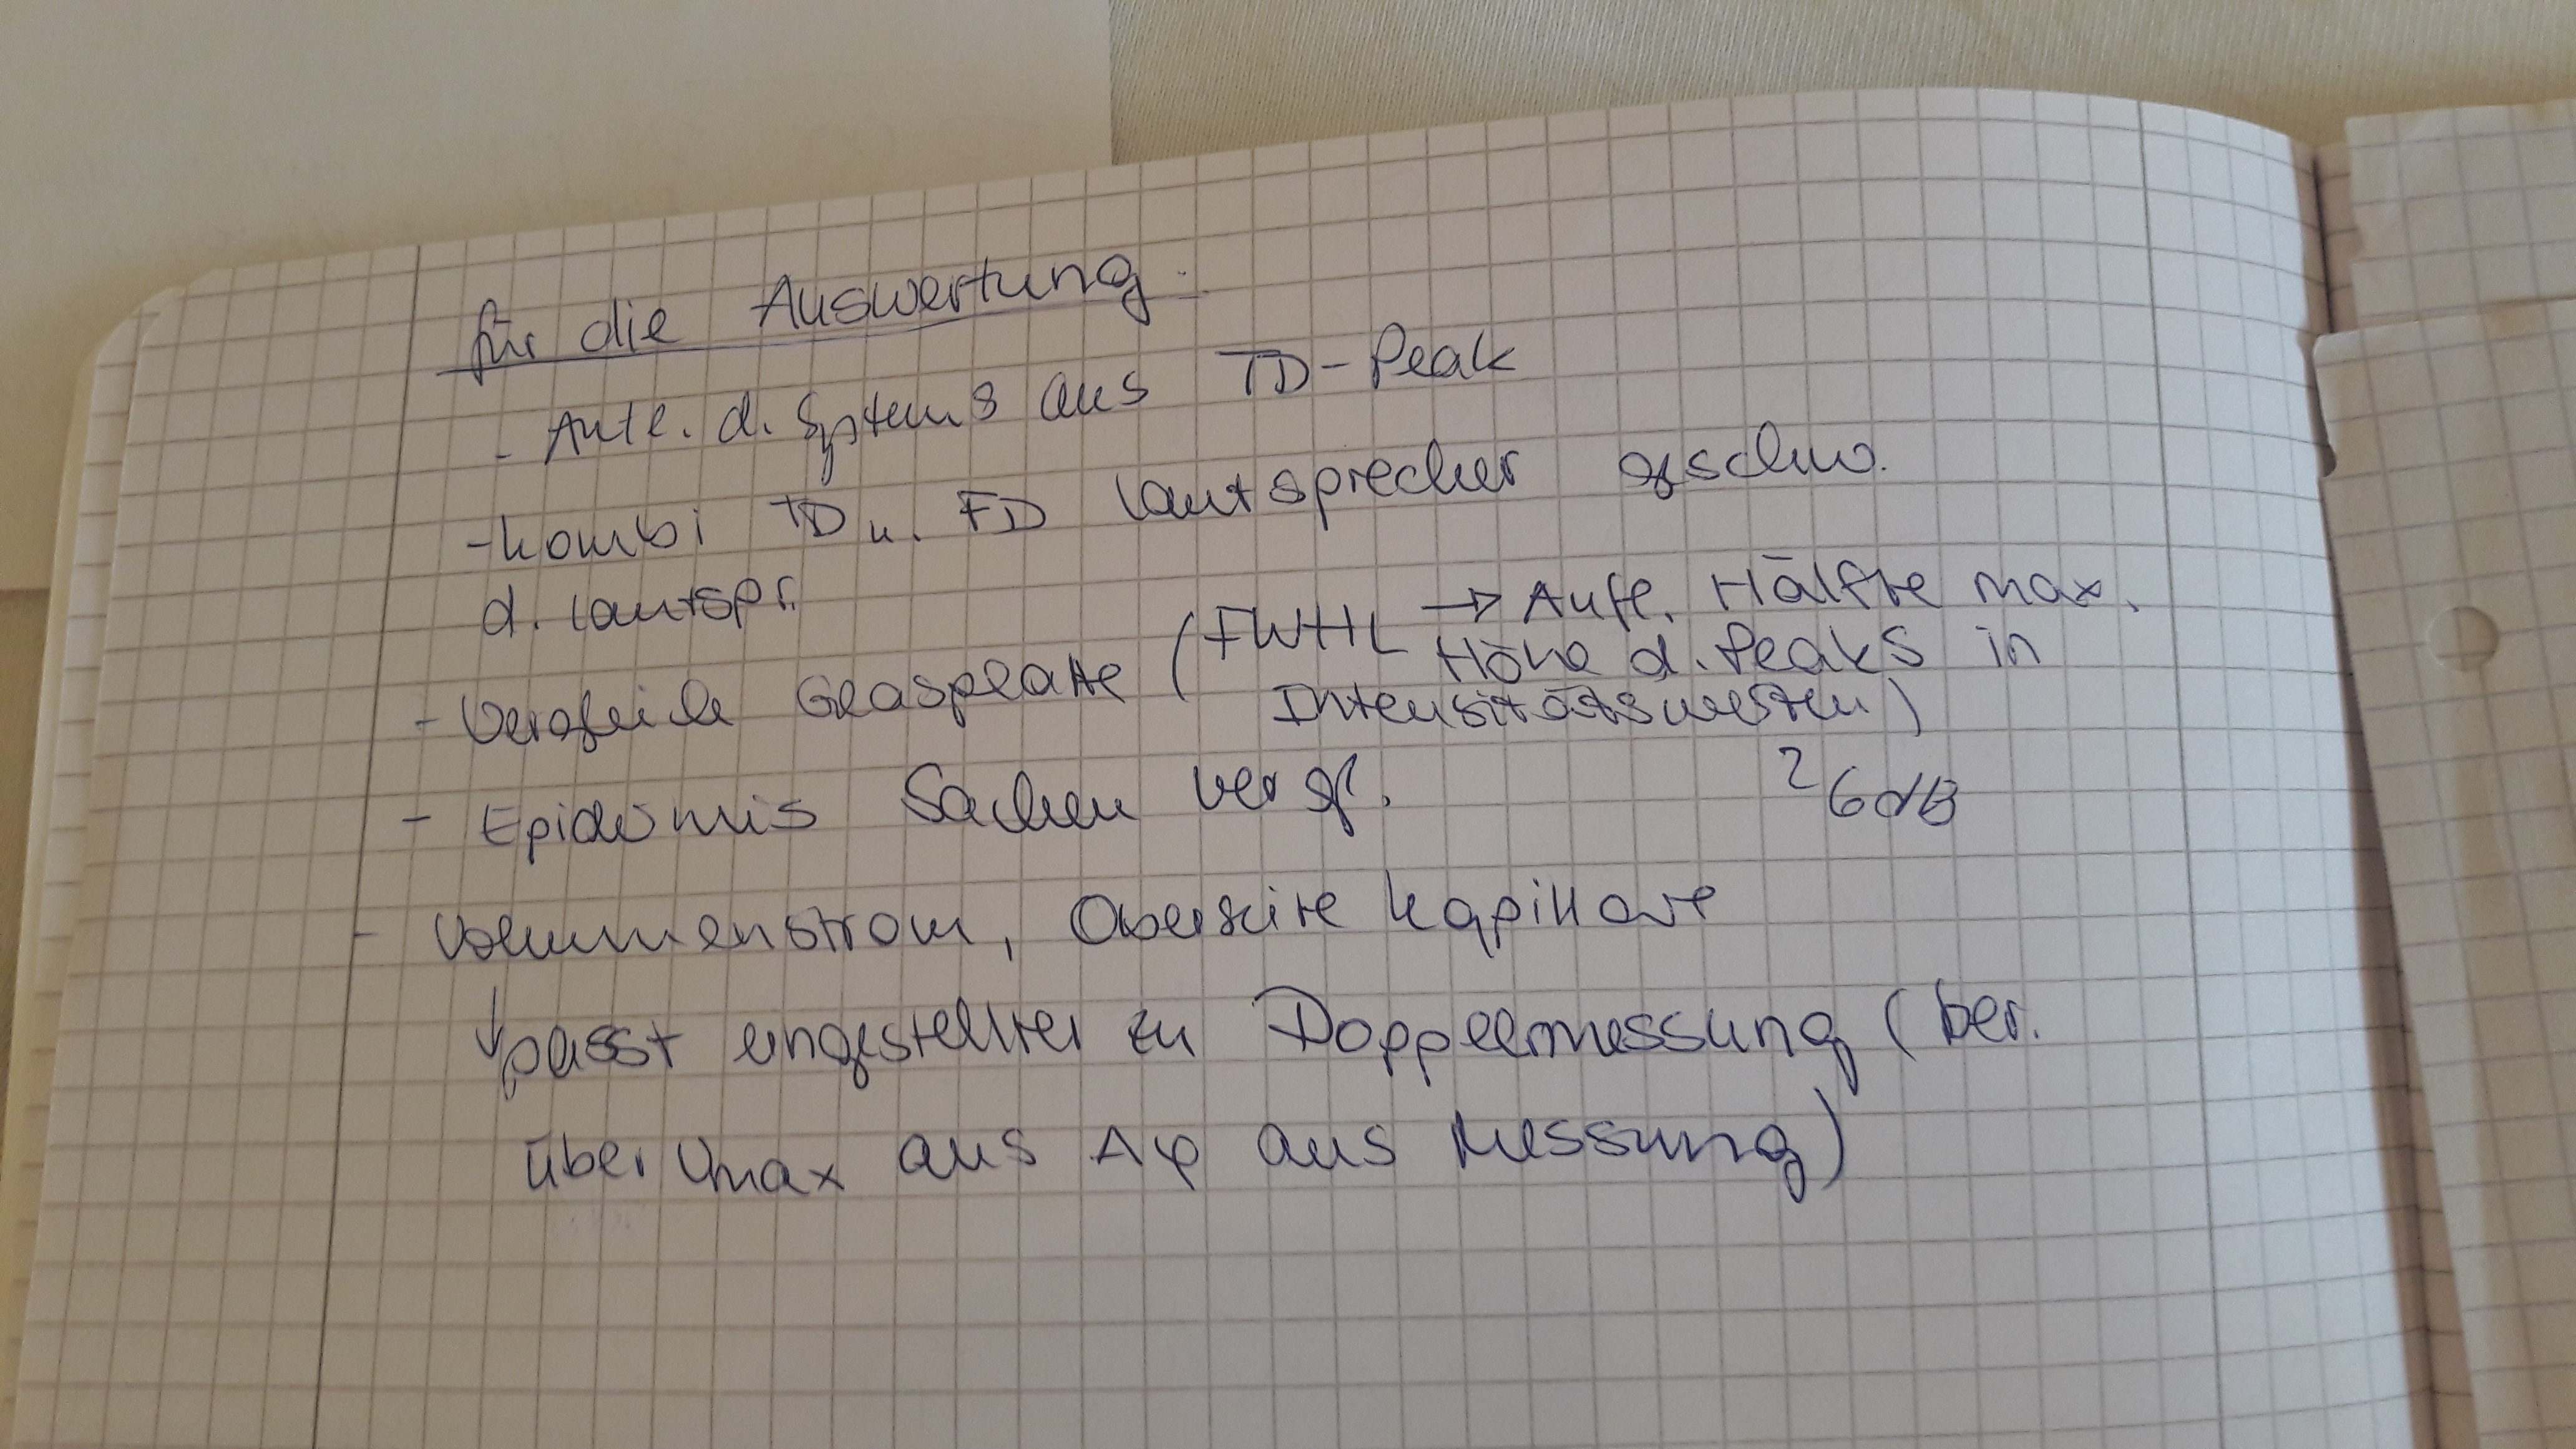 für die Auswertung:
- Aufl. d. Systems aus TD-Peak
- Kombi TD u. FD Lautsprecher geschw.
d. Lautspr.
- Vergleich Glasplatte (FWHL → Aufl. Hälfte max.
Höhe d. Peaks in
Intensitätswerten)
- Epidermis Sachen vergl.
6dB
- Volumenstrom, Oberseite Kapillare
↓ passt eingestellter zu Doppelmessung (ber.
über vmax aus Δφ aus Messung)